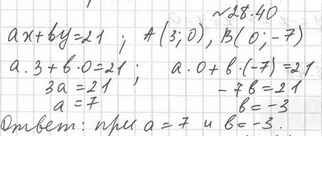 №28.40
ax+by=21 ; A(3;0), B(0;-7)
a·3+b·0=21 ; a·0+b·(-7)=21
3a=21 -7b=21
a=7 b=-3
Ответ: при a=7 и b=-3.